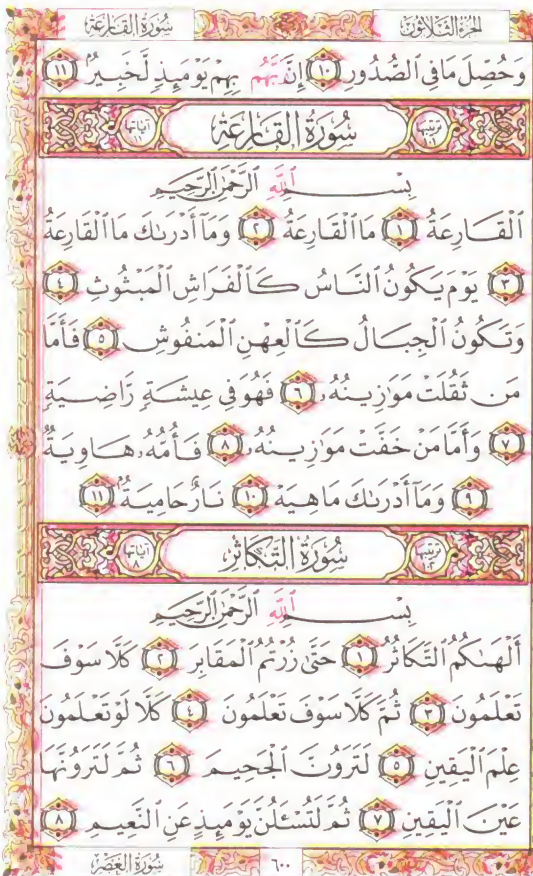 الجزء الثلاثون
سورة القارعة
وَحُصِّلَ مَا فِي ٱلصُّدُورِ ١٠ إِنَّ رَبَّهُم بِهِمْ يَوْمَئِذٍ لَّخَبِيرٌۢ ١١
ترتيبها ١٠١ سُورَةُ القَارِعَةِ آياتها ١١
بِسْمِ ٱللَّهِ ٱلرَّحْمَٰنِ ٱلرَّحِيمِ
ٱلْقَارِعَةُ ١ مَا ٱلْقَارِعَةُ ٢ وَمَآ أَدْرَىٰكَ مَا ٱلْقَارِعَةُ
٣ يَوْمَ يَكُونُ ٱلنَّاسُ كَٱلْفَرَاشِ ٱلْمَبْثُوثِ ٤
وَتَكُونُ ٱلْجِبَالُ كَٱلْعِهْنِ ٱلْمَنفُوشِ ٥ فَأَمَّا
مَن ثَقُلَتْ مَوَٰزِينُهُۥ ٦ فَهُوَ فِي عِيشَةٍ رَّاضِيَةٍ
٧ وَأَمَّا مَنْ خَفَّتْ مَوَٰزِينُهُۥ ٨ فَأُمُّهُۥ هَاوِيَةٌ
٩ وَمَآ أَدْرَىٰكَ مَا هِيَهْ ١٠ نَارٌ حَامِيَةٌۢ ١١
ترتيبها ١٠٢ سُورَةُ التَّكَاثُرِ آياتها ٨
بِسْمِ ٱللَّهِ ٱلرَّحْمَٰنِ ٱلرَّحِيمِ
أَلْهَىٰكُمُ ٱلتَّكَاثُرُ ١ حَتَّىٰ زُرْتُمُ ٱلْمَقَابِرَ ٢ كَلَّا سَوْفَ
تَعْلَمُونَ ٣ ثُمَّ كَلَّا سَوْفَ تَعْلَمُونَ ٤ كَلَّا لَوْ تَعْلَمُونَ
عِلْمَ ٱلْيَقِينِ ٥ لَتَرَوُنَّ ٱلْجَحِيمَ ٦ ثُمَّ لَتَرَوُنَّهَا
عَيْنَ ٱلْيَقِينِ ٧ ثُمَّ لَتُسْـَٔلُنَّ يَوْمَئِذٍ عَنِ ٱلنَّعِيمِ ٨
٦٠٠
سورة العصر